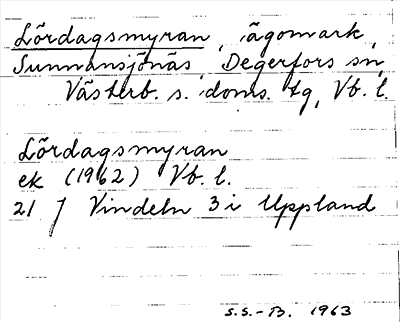 Lördagsmyran, ägomark,
Sunnansjönäs, Degerfors sn,
Västerb. s. doms. tg, Vb. l.
Lördagsmyran
ek (1962) Vb. l.
21 J Vindeln 3 i Uppland
S.S.-B. 1963